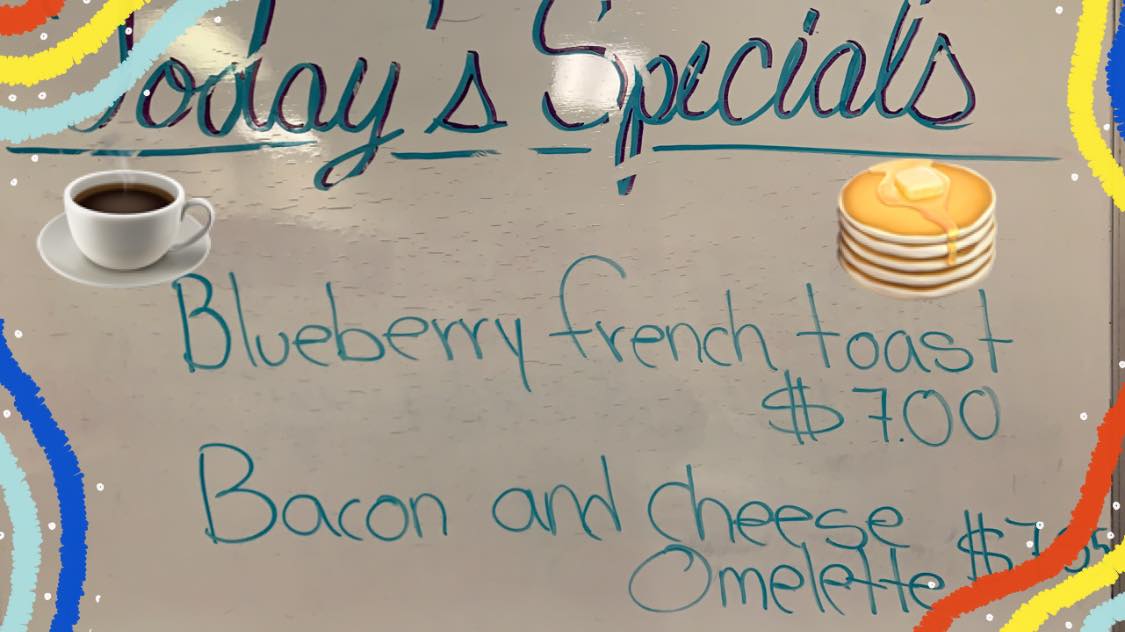 Today's Specials
Blueberry french toast
$7.00
Bacon and cheese
Omelette